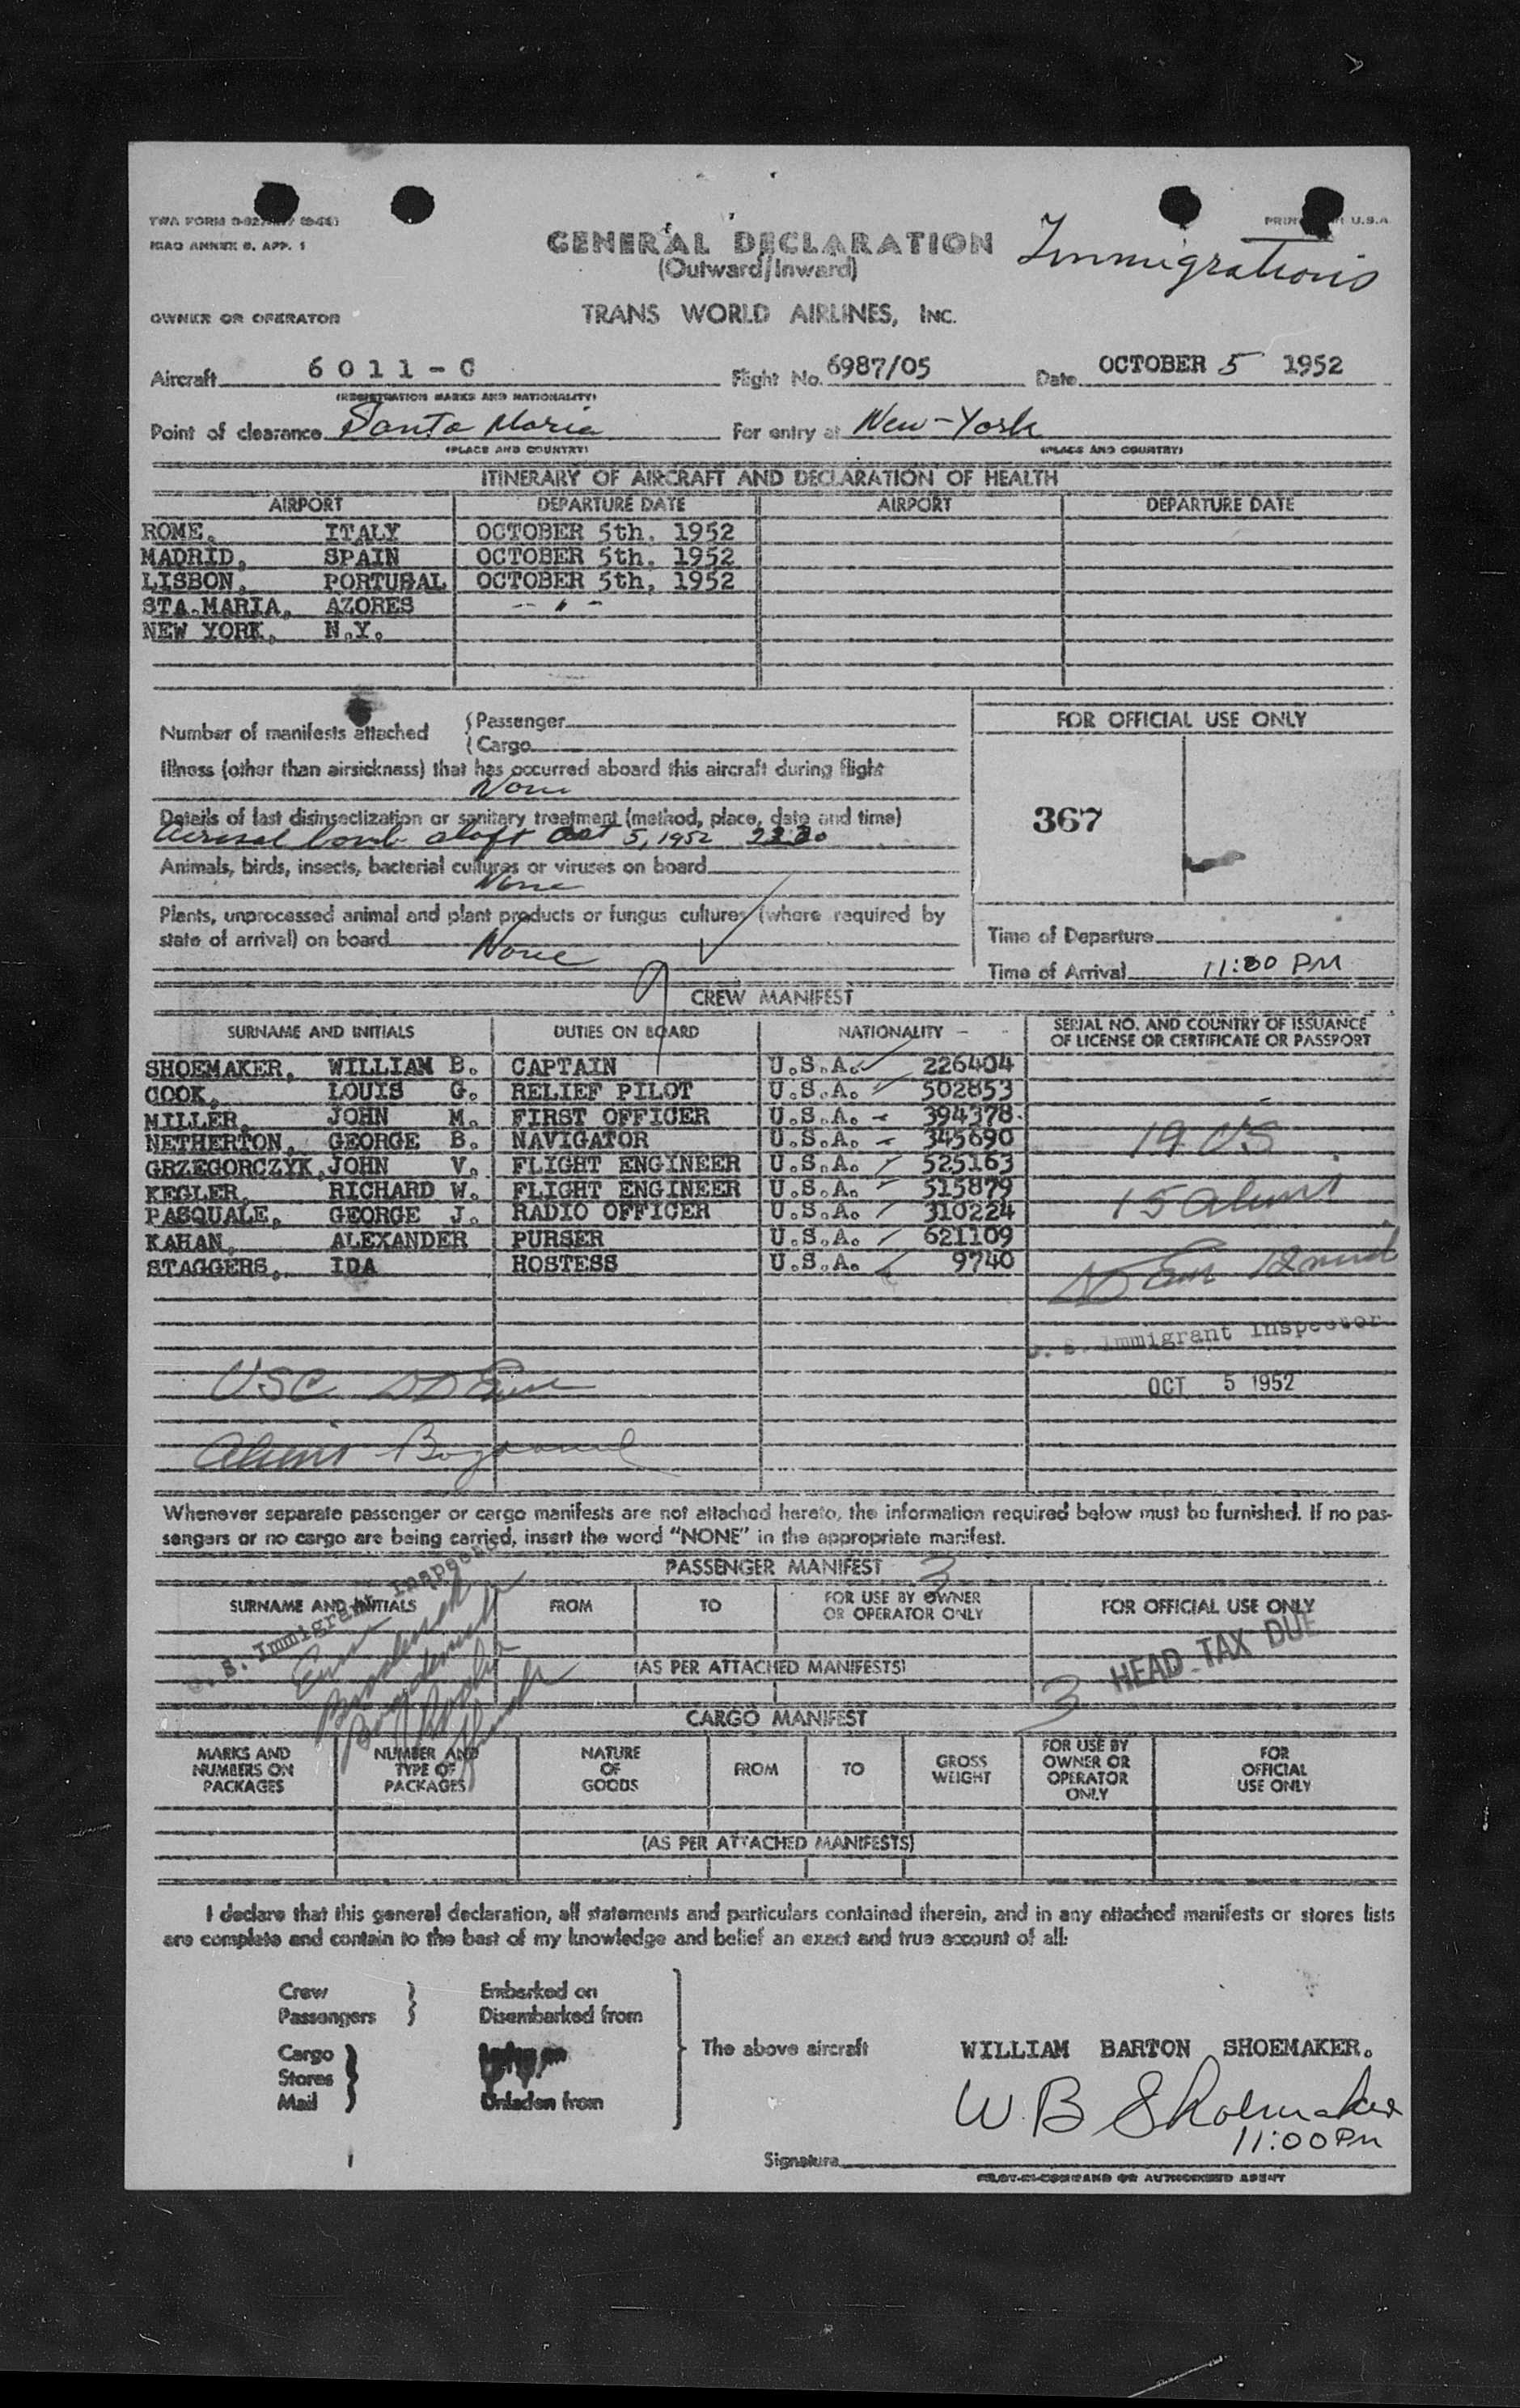 ICAO ANNEX 9, APP. 1
GENERAL DECLARATION
(Outward/Inward)
Immigrations
OWNER OR OPERATOR
TRANS WORLD AIRLINES, INC.
Aircraft 6011-C Flight No. 6987/05 Date OCTOBER 5 1952
(REGISTRATION MARKS AND NATIONALITY)
Point of clearance Santa Maria For entry at New-York
(PLACE AND COUNTRY) (PLACE AND COUNTRY)
ITINERARY OF AIRCRAFT AND DECLARATION OF HEALTH
AIRPORT DEPARTURE DATE AIRPORT DEPARTURE DATE
ROME, ITALY OCTOBER 5th, 1952
MADRID, SPAIN OCTOBER 5th, 1952
LISBON, PORTUGAL OCTOBER 5th, 1952
STA.MARIA, AZORES - " -
NEW YORK, N.Y.
Number of manifests attached { Passenger
{ Cargo
FOR OFFICIAL USE ONLY
Illness (other than airsickness) that has occurred aboard this aircraft during flight
None
Details of last disinsectization or sanitary treatment (method, place, date and time)
aerosol bomb aloft Oct 5, 1952
367
Animals, birds, insects, bacterial cultures or viruses on board
None
Plants, unprocessed animal and plant products or fungus cultures (where required by
state of arrival) on board None
Time of Departure
Time of Arrival 11:00 PM
CREW MANIFEST
SURNAME AND INITIALS DUTIES ON BOARD NATIONALITY SERIAL NO. AND COUNTRY OF ISSUANCE
OF LICENSE OR CERTIFICATE OR PASSPORT
SHOEMAKER, WILLIAM B. CAPTAIN U.S.A. 226404
COOK, LOUIS G. RELIEF PILOT U.S.A. 502853
MILLER, JOHN M. FIRST OFFICER U.S.A. 394378
NETHERTON, GEORGE B. NAVIGATOR U.S.A. 345690
19 US
GRZEGORCZYK, JOHN V. FLIGHT ENGINEER U.S.A. 525163
KEGLER, RICHARD W. FLIGHT ENGINEER U.S.A. 515879
15 aliens
PASQUALE, GEORGE J. RADIO OFFICER U.S.A. 310224
KAHAN, ALEXANDER PURSER U.S.A. 621109
STAGGERS, IDA HOSTESS U.S.A. 9740
U. S. Immigrant Inspector
USC
OCT 5 1952
Aliens
Whenever separate passenger or cargo manifests are not attached hereto, the information required below must be furnished. If no pas-
sengers or no cargo are being carried, insert the word "NONE" in the appropriate manifest.
PASSENGER MANIFEST 3
SURNAME AND INITIALS FROM TO FOR USE BY OWNER
OR OPERATOR ONLY FOR OFFICIAL USE ONLY
U. S. Immigrant Inspector
(AS PER ATTACHED MANIFESTS)
3 HEAD TAX DUE
CARGO MANIFEST
MARKS AND
NUMBERS ON
PACKAGES NUMBER AND
TYPE OF
PACKAGES NATURE
OF
GOODS FROM TO GROSS
WEIGHT FOR USE BY
OWNER OR
OPERATOR
ONLY FOR
OFFICIAL
USE ONLY
(AS PER ATTACHED MANIFESTS)
I declare that this general declaration, all statements and particulars contained therein, and in any attached manifests or stores lists
are complete and contain to the best of my knowledge and belief an exact and true account of all:
Crew } Embarked on
Passengers } Disembarked from
Cargo }
Stores } The above aircraft
Mail } Unladen from
WILLIAM BARTON SHOEMAKER.
W. B Shoemaker
11:00 PM
Signature
PILOT-IN-COMMAND OR AUTHORIZED AGENT